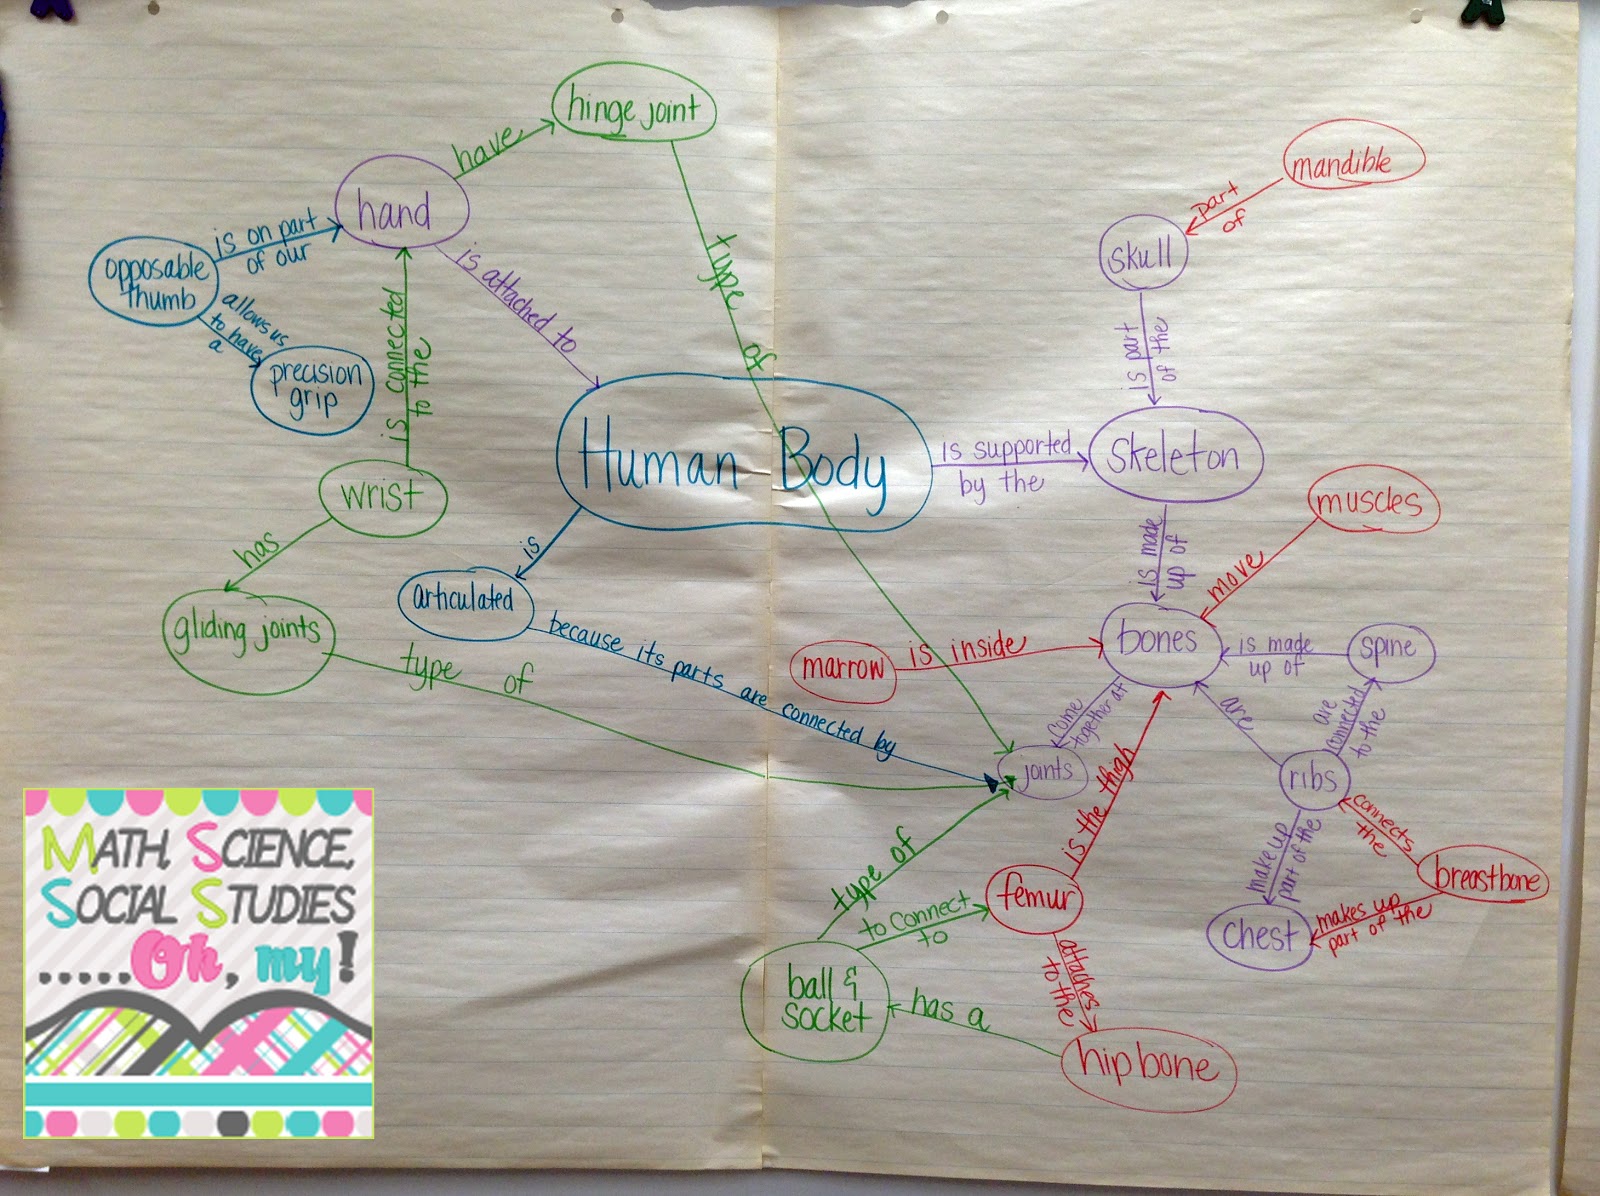 hinge joint
have
hand
is on part
of our
opposable
thumb
allows us
to have
a
precision
grip
is attached to
is connected
to the
type of
mandible
part
of
skull
is part
of the
Human Body
is supported
by the
Skeleton
wrist
has
gliding joints
type of
is
articulated
because its parts are connected by
is made
up of
muscles
move
bones
marrow
is inside
is made
up of
spine
are
connected
to the
are
come
together at
joints
ribs
is the thigh
connects
the
breastbone
make up
part of the
makes up
part of the
chest
type of
to connect
to
femur
attaches
to the
ball &
socket
has a
hip bone
MATH, SCIENCE,
SOCIAL STUDIES
.....Oh, my!